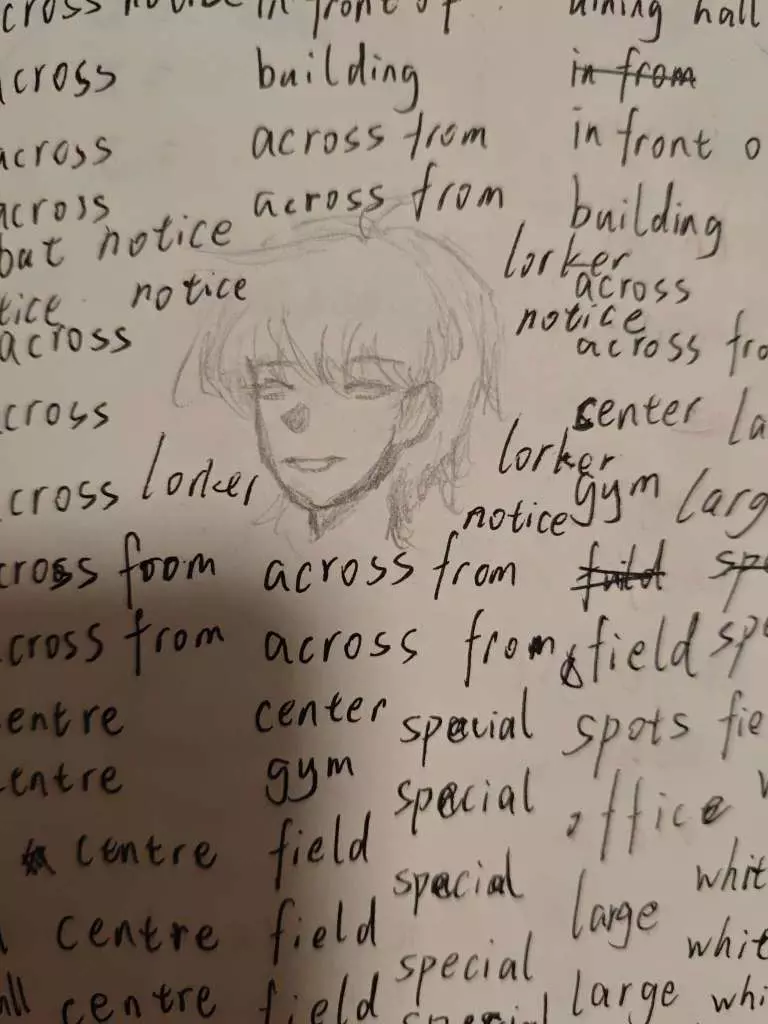 cross notice in front of dining hall
across building in from
across across from in front o
across across from building
but notice lorker
tice notice across
notice
across across fro
cross center la
lorker
cross lorker gym larg
notice
cross foom across from sp
cross from across from field spe
entre center special spots fie
entre gym special office
centre field special whit
centre field large whit
all centre field special large whi
special